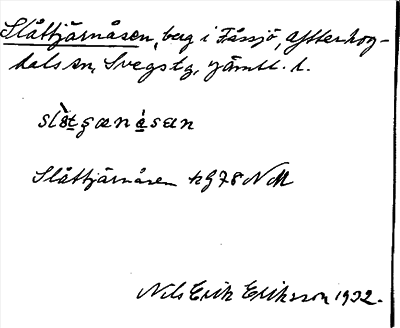 Slåttjärnåsen, berg i Fåssjö, Ytterhog-
dals sn, Svegs tg, Jämtl. l.
Slåttjärnåsen kg 78 NM
Nils Erik Eriksson 1932.